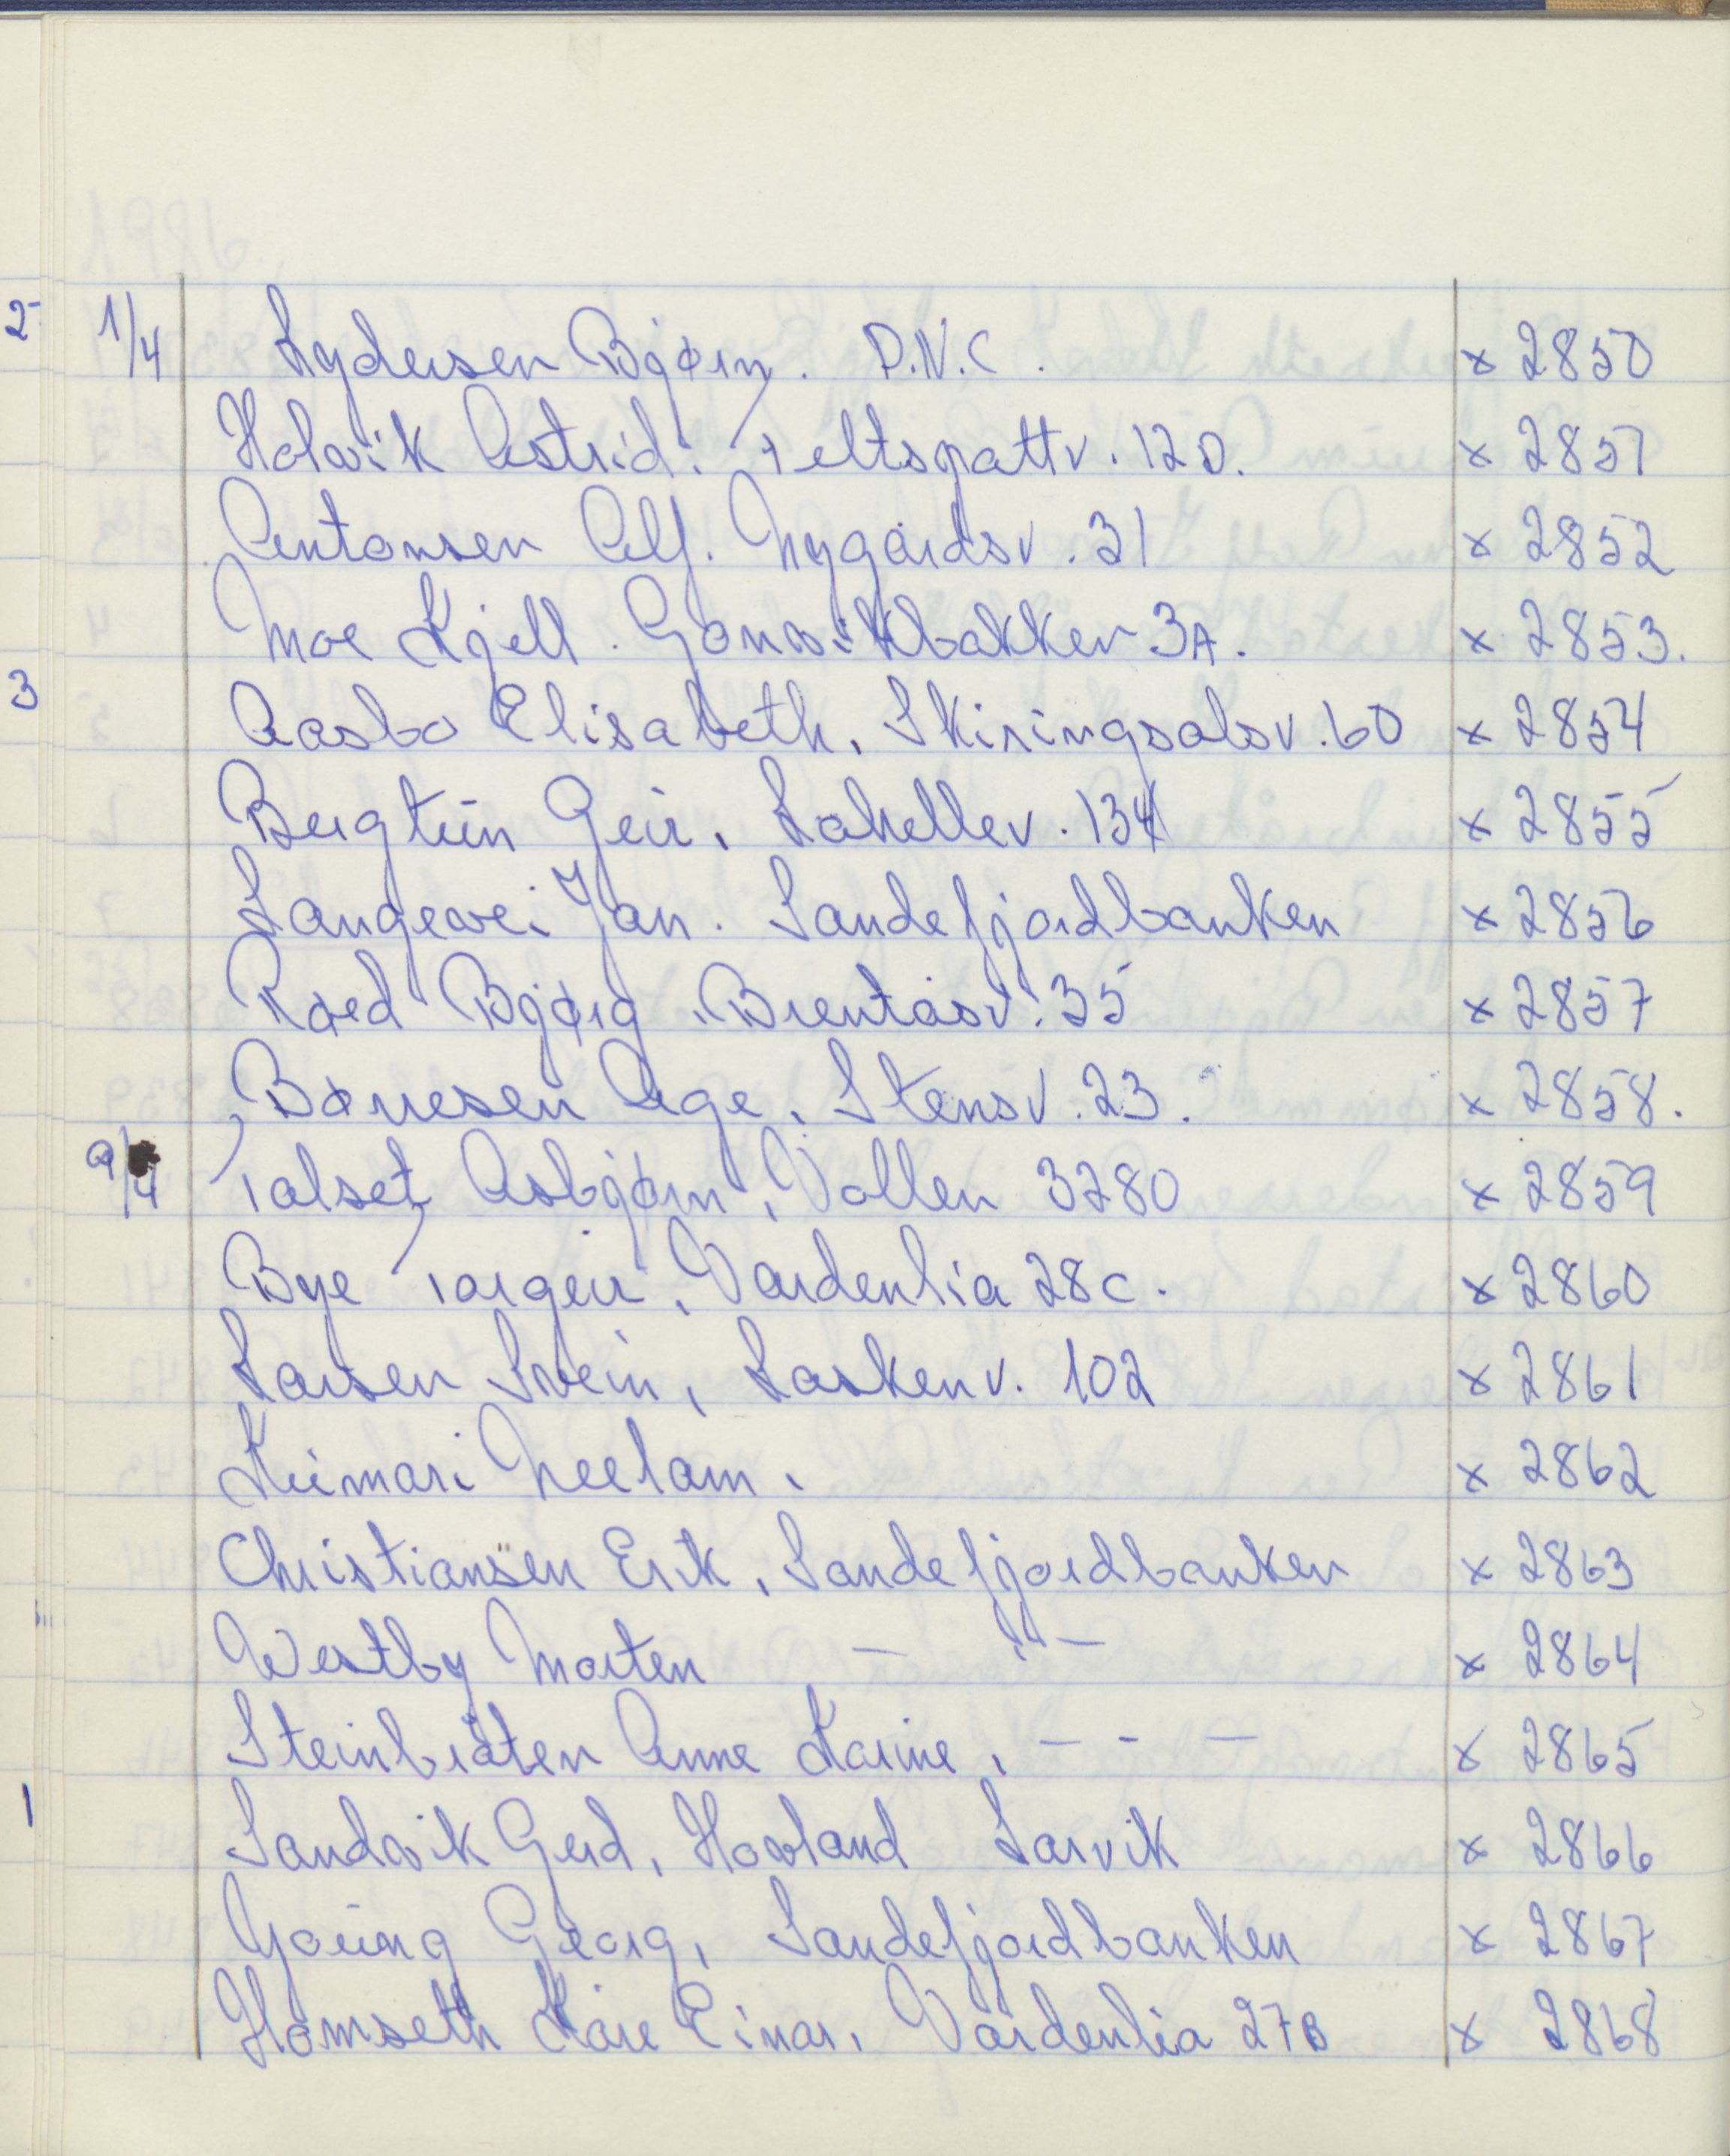 2 1/4 Lydersen Bjørn. D.N.C. x 2850
Holvik Astrid. Feltspattv. 12D. x 2851
Antonsen Alf. Nygårdsv. 31 x 2852
Moe Kjell. Gonvikbakken 3A. x 2853.
3 Aasbø Elisabeth, Skiringsalsv. 60 x 2854
Bergtun Geir, Lahellev. 134 x 2855
Langevei Jan. Sandefjordbanken x 2856
Røed Bjørg, Brentåsv. 35 x 2857
Børresen Åge, Stensv. 23. x 2858.
9/4 Talset Asbjørn, Vollen 3280 x 2859
Bye Torgeir, Vardenlia 28C. x 2860
Larsen Svein, Laskenv. 102 x 2861
Kumari Neelam, x 2862
Christiansen Erik, Sandefjordbanken x 2863
Westby Morten — " — x 2864
Steinbråten Anne Karine, — - — x 2865
1 Sandvik Gerd, Hovland Larvik x 2866
Young Georg, Sandefjordbanken x 2867
Homseth Kåre Einar, Vardenlia 27B x 2868